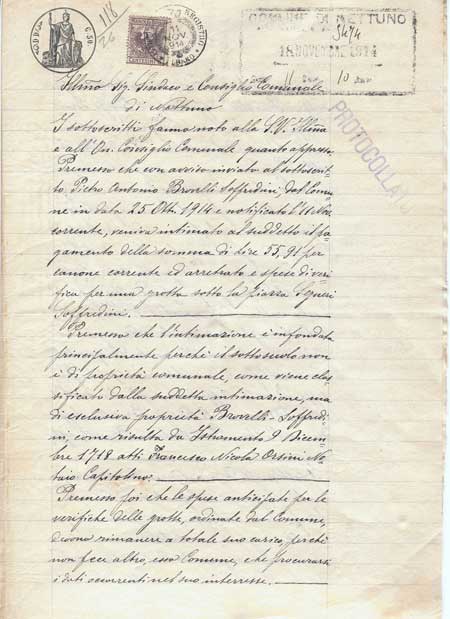 118
26
COMUNE DI NETTUNO
5474
18 NOVEMBRE 1914
11 10
PROTOCOLLA
NOV
1914
Illmo Sig. Sindaco e Consiglio Comunale
di Nettuno
I sottoscritti fanno noto alla S.V. Illma
e all'On. Consiglio Comunale quanto appresso.
Premesso che con avviso inviato al sottoscrit-
to, Pietro Antonio Brovelli Soffredini, dal Comu-
ne in data 25 Ott. 1914 e notificato l'11 Nov.
corrente, veniva intimato al suddetto il pa-
gamento della somma di lire 55,91 per
canone corrente ed arretrato e spese di veri-
fica per una grotta sotto la piazza Segneri
Soffredini.
Premesso che l'intimazione è infondata
principalmente perchè il sottosuolo non
è di proprietà comunale, come viene clas-
sificato dalla suddetta intimazione, ma
di esclusiva proprietà Brovelli-Soffredi-
ni, come risulta da Istrumento 9 Dicem-
bre 1718 atti Francesco Nicola Orsini No-
taio Capitolino;
Premesso poi che le spese anticipate per le
verifiche delle grotte, ordinate dal Comune,
devono rimanere a totale suo carico, perchè
non fece altro, esso Comune, che procurarsi
i dati occorrenti nel suo interesse.